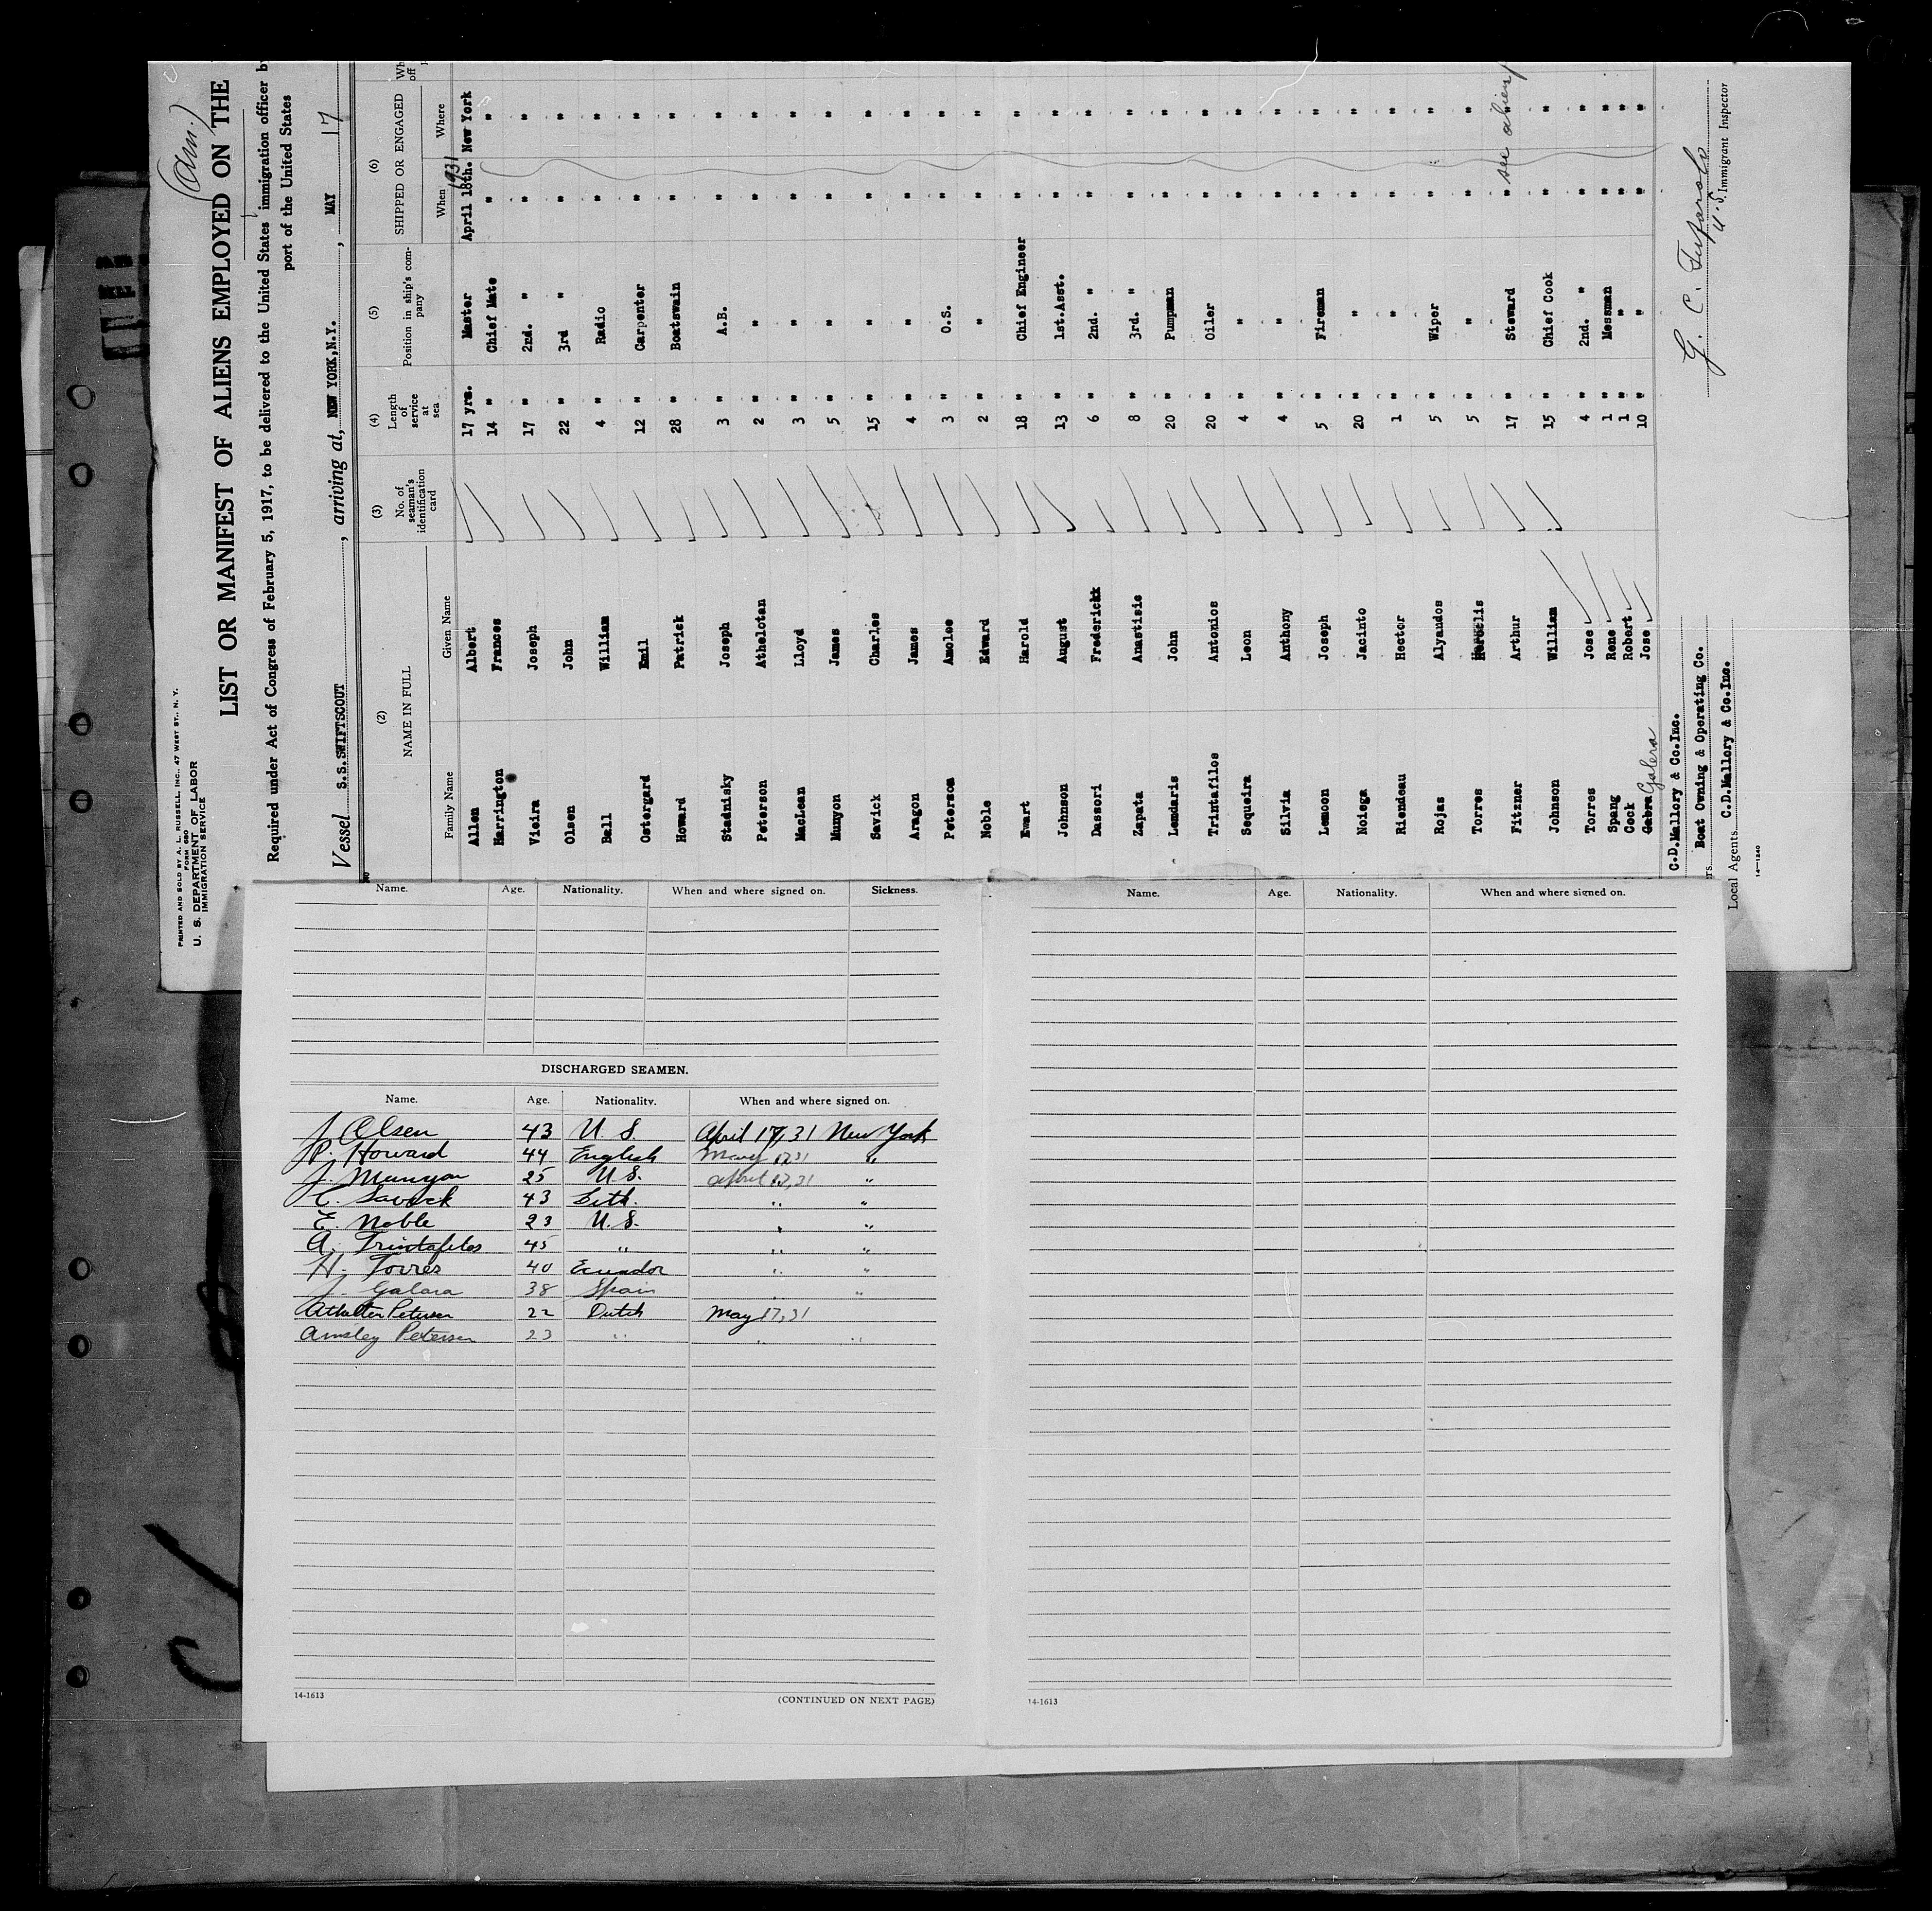 PRINTED AND SOLD BY A. L. RUSSELL, INC., 47 WEST ST., N. Y.
FORM 680
U. S. DEPARTMENT OF LABOR
IMMIGRATION SERVICE
(am.)
LIST OR MANIFEST OF ALIENS EMPLOYED ON THE
Required under Act of Congress of February 5, 1917, to be delivered to the United States immigration officer by
port of the United States
Vessel S.S. SWIFTSCOUT, arriving at, NEW YORK, N.Y., MAY 17
(2) (3) (4) (5) (6)
NAME IN FULL No. of seaman's identification card Length of service at sea Position in ship's company SHIPPED OR ENGAGED
Family Name Given Name When Where
1931
Allen Albert 17 yrs. Master April 18th. New York
Harrington Frances 14 " Chief Mate " "
Vieira Joseph 17 " 2nd. " " "
Olsen John 22 " 3rd " " "
Ball William 4 " Radio " "
Ostergard Emil 12 " Carpenter " "
Howard Patrick 28 " Boatswain " "
Stadnisky Joseph 3 " A.B. " "
Peterson Athelotan 2 " " " "
MacLean Lloyd 3 " " " "
Munyon James 5 " " " "
Savick Charles 15 " " " "
Aragon James 4 " " " "
Peterson Amolee 3 " O.S. " "
Noble Edward 2 " " " "
Evart Harold 18 " Chief Engineer " "
Johnson August 13 " 1st.Asst. " "
Dassori Frederick 6 " 2nd. " " "
Zapata Anastisie 8 " 3rd. " " "
Lemdaris John 20 " Pumpman " "
Trintafilos Antonios 20 " Oiler " "
Sequeira Leon 4 " " " "
Silvia Anthony 4 " " " "
Lemoon Joseph 5 " Fireman " "
Noiega Jacinto 20 " " " "
Riendeau Hector 1 " " " "
Rojas Alyandos 5 " Wiper " "
Torres 5 " " " "
Fitzner Arthur 17 " Steward " "
see aliens
Johnson William 15 " Chief Cook " "
Torres Jose 4 " 2nd. " " "
Spang Rene 1 " Messman " "
Cock Robert 1 " " " "
Gabera Galera Jose 10 " " " "
C.D.Mallory & Co.Inc.
Boat Owning & Operating Co.
Local Agents C.D.Mallory & Co.Inc.
14—1240
G. C.
U.S. Immigrant Inspector
Name. Age. Nationality. When and where signed on. Sickness.
DISCHARGED SEAMEN.
Name. Age. Nationality. When and where signed on.
J Olsen 43 U. S. April 17, 31 New York
P. Howard 44 English May 17, 31 "
J. Munyon 25 U. S. April 17, 31 "
C. Savick 43 Lith. " "
E. Noble 23 U. S. " "
A. Trintafilos 45 " " "
H. Torres 40 Ecuador " "
J. Galara 38 Spain " "
Petersen 22 Dutch May 17, 31
Amsley Petersen 23 " " "
14-1613
(CONTINUED ON NEXT PAGE)
Name. Age. Nationality. When and where signed on.
14-1613